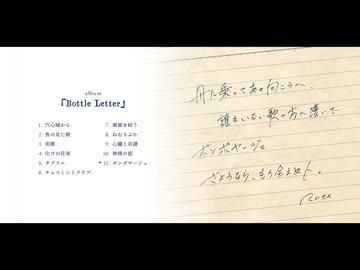 album
『Bottle Letter』
1. 穴心城から
2. 魚の見た朝
3. 雨葬
4. 化けの花束
5. タブリエ
6. チョコミントクラブ
7. 潮風を紡う
8. ねむりぶか
9. 心臓と奇譚
10. 神様の庭
* 11. ボンボヤージュ
舟に乗ってあの向こうへ、
誰もいない歌の方へ漕いで、
ボンボヤージュ
さようなら、もう会えぬ人。